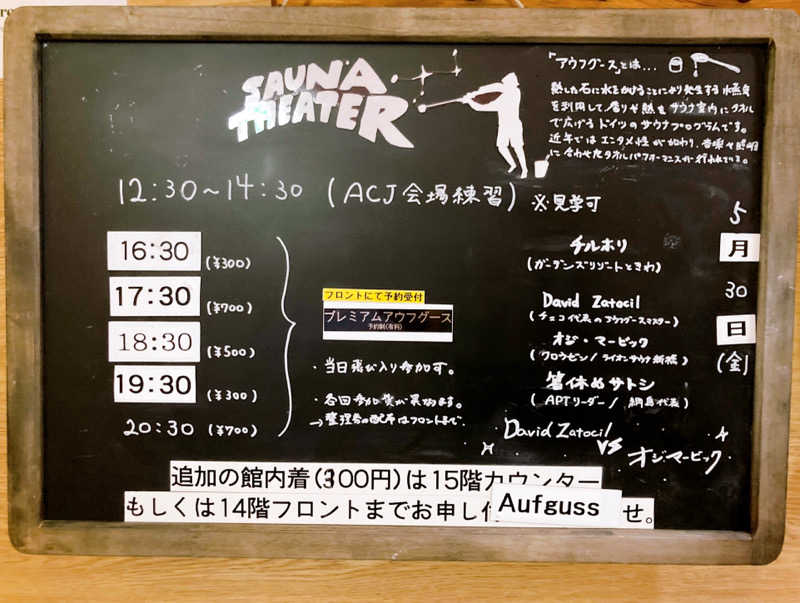 SAUNA
THEATER
「アウフグース」とは...
熱した石に水をかけることにより発生する水蒸気
を利用して、香りや熱をサウナ室内にタオル
で広げるドイツのサウナプログラムです。
近年ではエンタメ性が加わり、音楽や照明
に合わせたタオルパフォーマンスが行われている。
12:30～14:30 (ACJ会場練習) ※見学可
5
月
30
日
(金)
16:30 (¥300)
チルホリ
(ガーデンズリゾートときわ)
17:30 (¥700)
David Zatocil
(チェコ代表のアウフグースマスター)
18:30 (¥500)
オジ・マービック
(クロウゼン/ライオンサウナ新橋)
19:30 (¥300)
箸休めサトシ
(APTリーダー/ 綱島代表)
20:30 (¥700)
David Zatocil
VS
オジマービック
フロントにて予約受付
プレミアムアウフグース
予約制(有料)
・当日飛び入り参加可。
・各回参加費が異なります。
→整理券の配布はフロントまで。
追加の館内着(300円)は15階カウンター
もしくは14階フロントまでお申し付
Aufguss
せ。